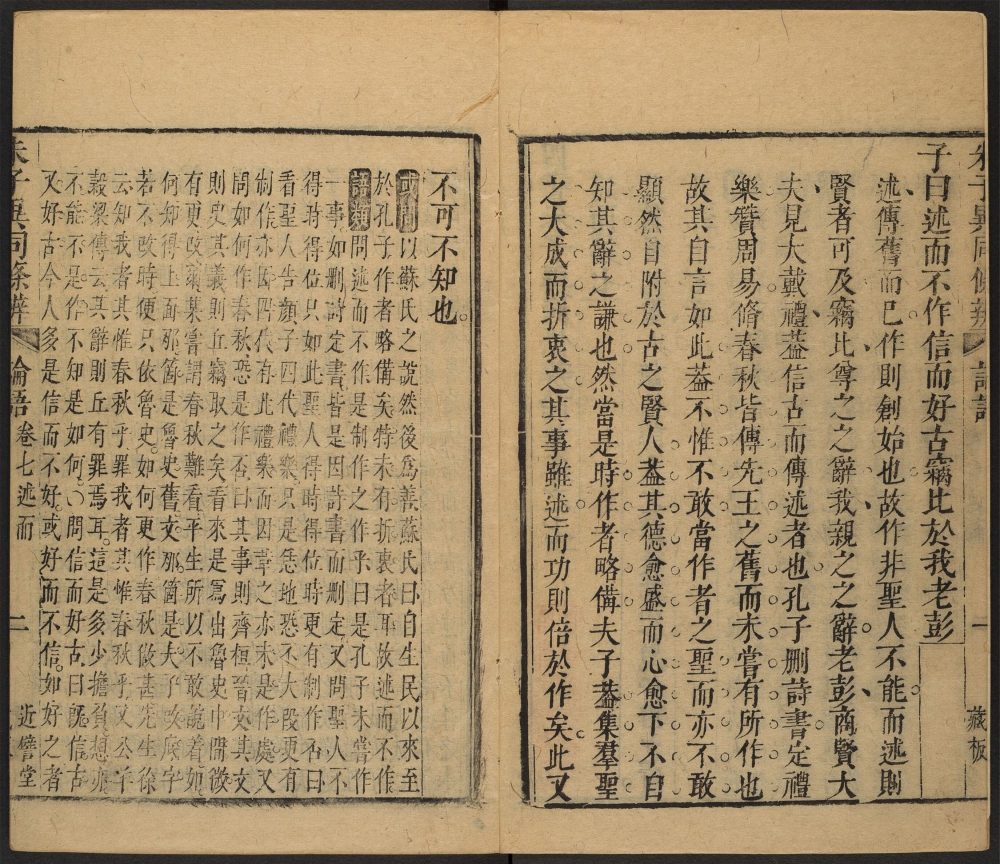 子曰述而不作信而好古竊比於我老彭
述傳舊而已作則創始也故作非聖人不能而述則
賢者可及竊比尊之之辭我親之之辭老彭商賢大
夫見大戴禮葢信古而傳述者也孔子删詩書定禮
樂贊周易脩春秋皆傳先王之舊而未嘗有所作也
故其自言如此葢不惟不敢當作者之聖而亦不敢
顯然自附於古之賢人葢其德愈盛而心愈下不自
知其辭之謙也然當是時作者略備夫子葢集羣聖
之大成而折衷之其事雖述而功則倍於作矣此又
藏板
不可不知也
或問以蘇氏之說然後爲善蘇氏曰自生民以來至
於孔子作者略備矣特未有折衷者耳故述而不作
語類問述而不作是制作之作乎曰是孔子未嘗作
一事如删詩定書皆是因詩書而删定又問聖人不
得時得位只如此聖人得時得位時更有制作否曰
看聖人告顔子四代禮樂只是恁地恐不大段更有
制作亦因四代有此禮樂而因革之亦未是作處又
問如何作春秋恐是作否曰其事則齊桓晉文其文
則史其義則丘竊取之矣看來是寫出魯史中間微
有更改某嘗謂春秋難看平生所以不敢說着如
何知得上面那箇是魯史舊文那箇是夫子改底字
若不改時便只依魯史如何更作春秋做甚先生徐
云知我者其惟春秋乎罪我者其惟春秋乎又公羊
穀梁傳云其辭則丘有罪焉耳這是多少擔負想亦
不能不是作不知是如何○問信而好古曰旣信古
又好古今人多是信而不好或好而不信如好之者
朱子異同條辨 論語卷七述而 二 近譬堂